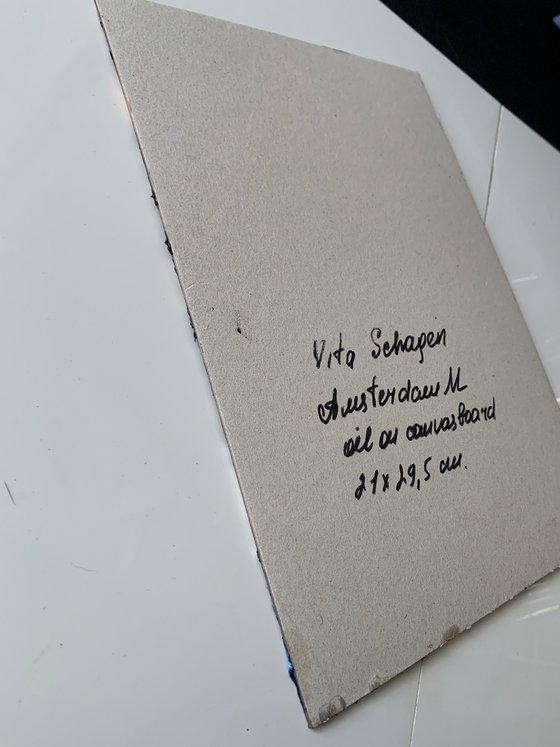 Vita Schagen
Amsterdam
oil on canvasboard
21x29,5 cm.